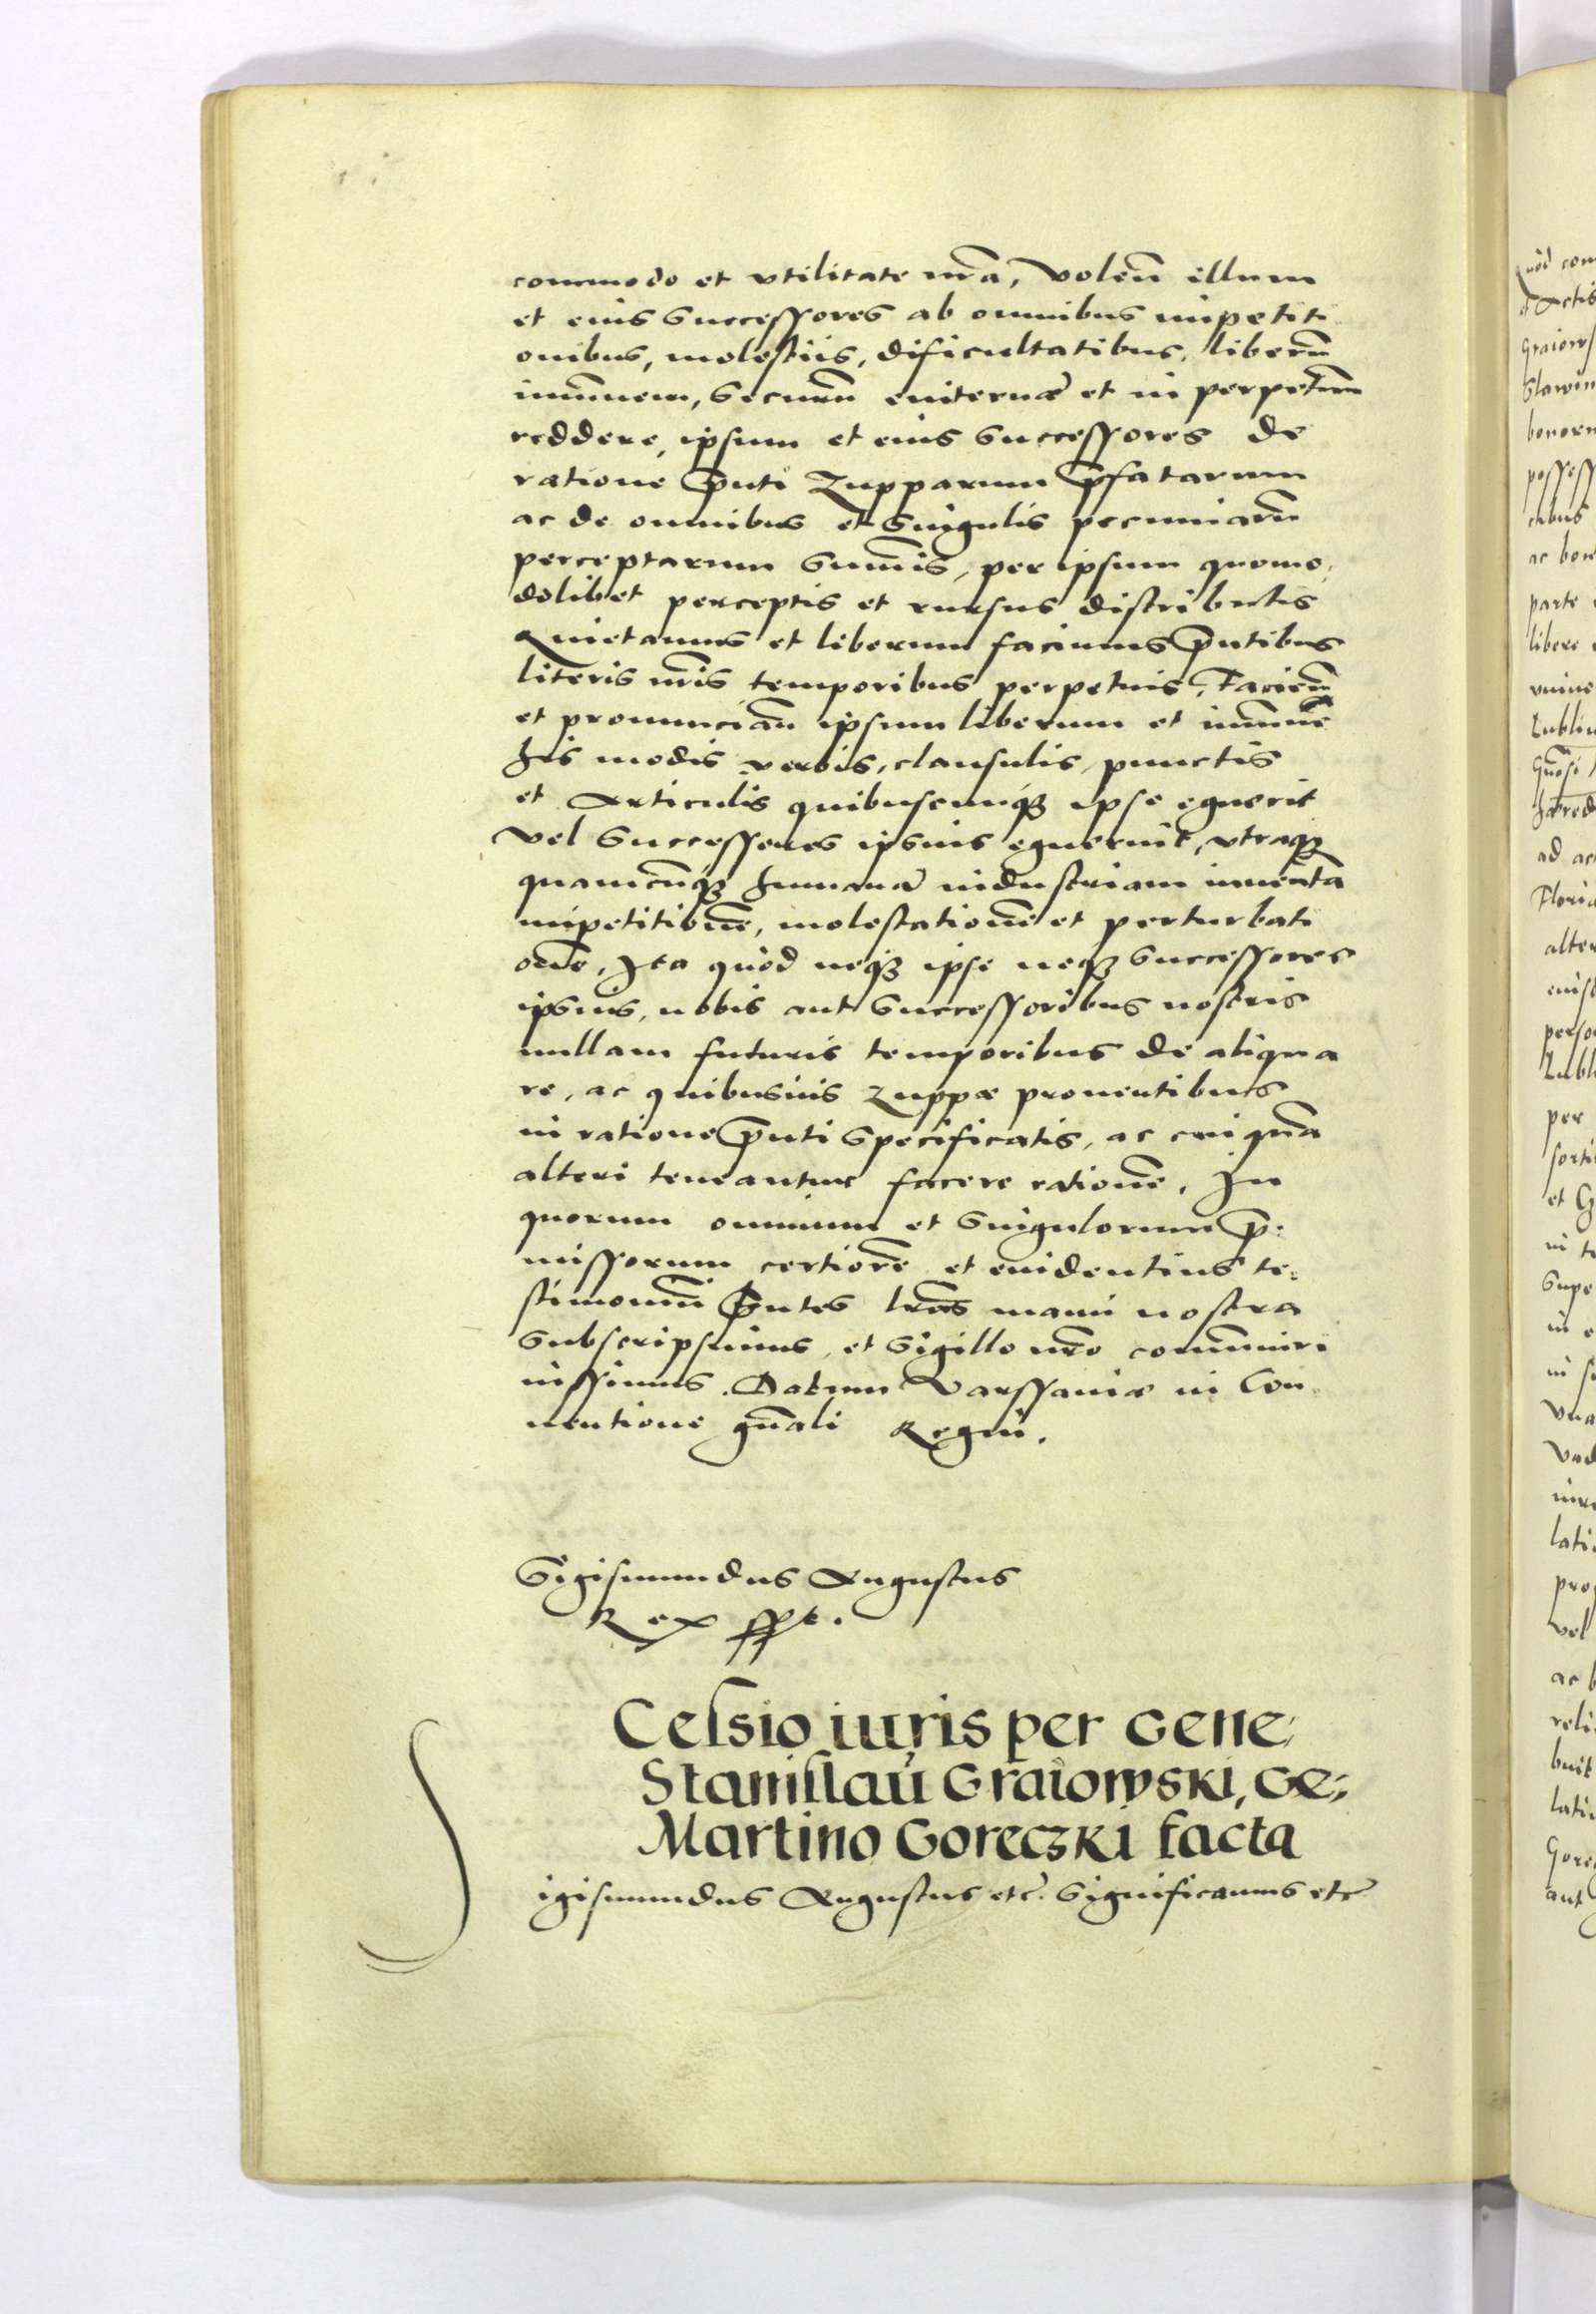 commodo et vtilitate nrã, Voleñ illum
et eius Successores ab omnibus impetiti
onibus, molestiis, dificultatibus, liberũ
imũnem, Securũ euiternæ et in perpetuũ
reddere, ipsum et eius Successores de
ratione p̃nti Zupparum p̃fatarum
ac de omnibus et Singulis pecuniarũ
perceptarum Sum̃is, per ipsum quomo,
dolibet perceptis et rursus distributis
Quietamus et liberum facimus p̃ntibus
literis nr̃is temporibus perpetuis, Facieñ
et pronunciañ ipsum liberum et imũnẽ
his modis verbis, clausulis, punctis
et Articulis quibuscunq3 ipse eguerit
vel Successores ipsius eguerint, vtraq3
quamcũq3 humana industriam inuentã
impetitionẽ, molestationẽ et perturbati
onẽ, Ita quod neq3 ipse neq3 Successores
ipsius, nobis aut Successoribus nostris
nullam futuris temporibus de aliqua
re, ac quibusuis Zuppæ prouentibus
in ratione p̃nti Specificatis, ac cuiquã
alteri teneantur facere rationẽ, In
quorum omnium et Singulorum p̃:
missorum certiorẽ et euidentius te:
stimoniũ p̃ntes lrãs manu nostra
Subscripsimus, et Sigillo nrõ com̃uniri
iussimus. Datum Varssauiæ in Con
uentione gñali Regni.
Sigismundus Augustus
Rex sspt.
Cessio iuris per Gene:
Stanislaũ Graiowski, Ge:
Martino Goreczki facta
Sigismundus Augustus etc̃. Significamus etc̃